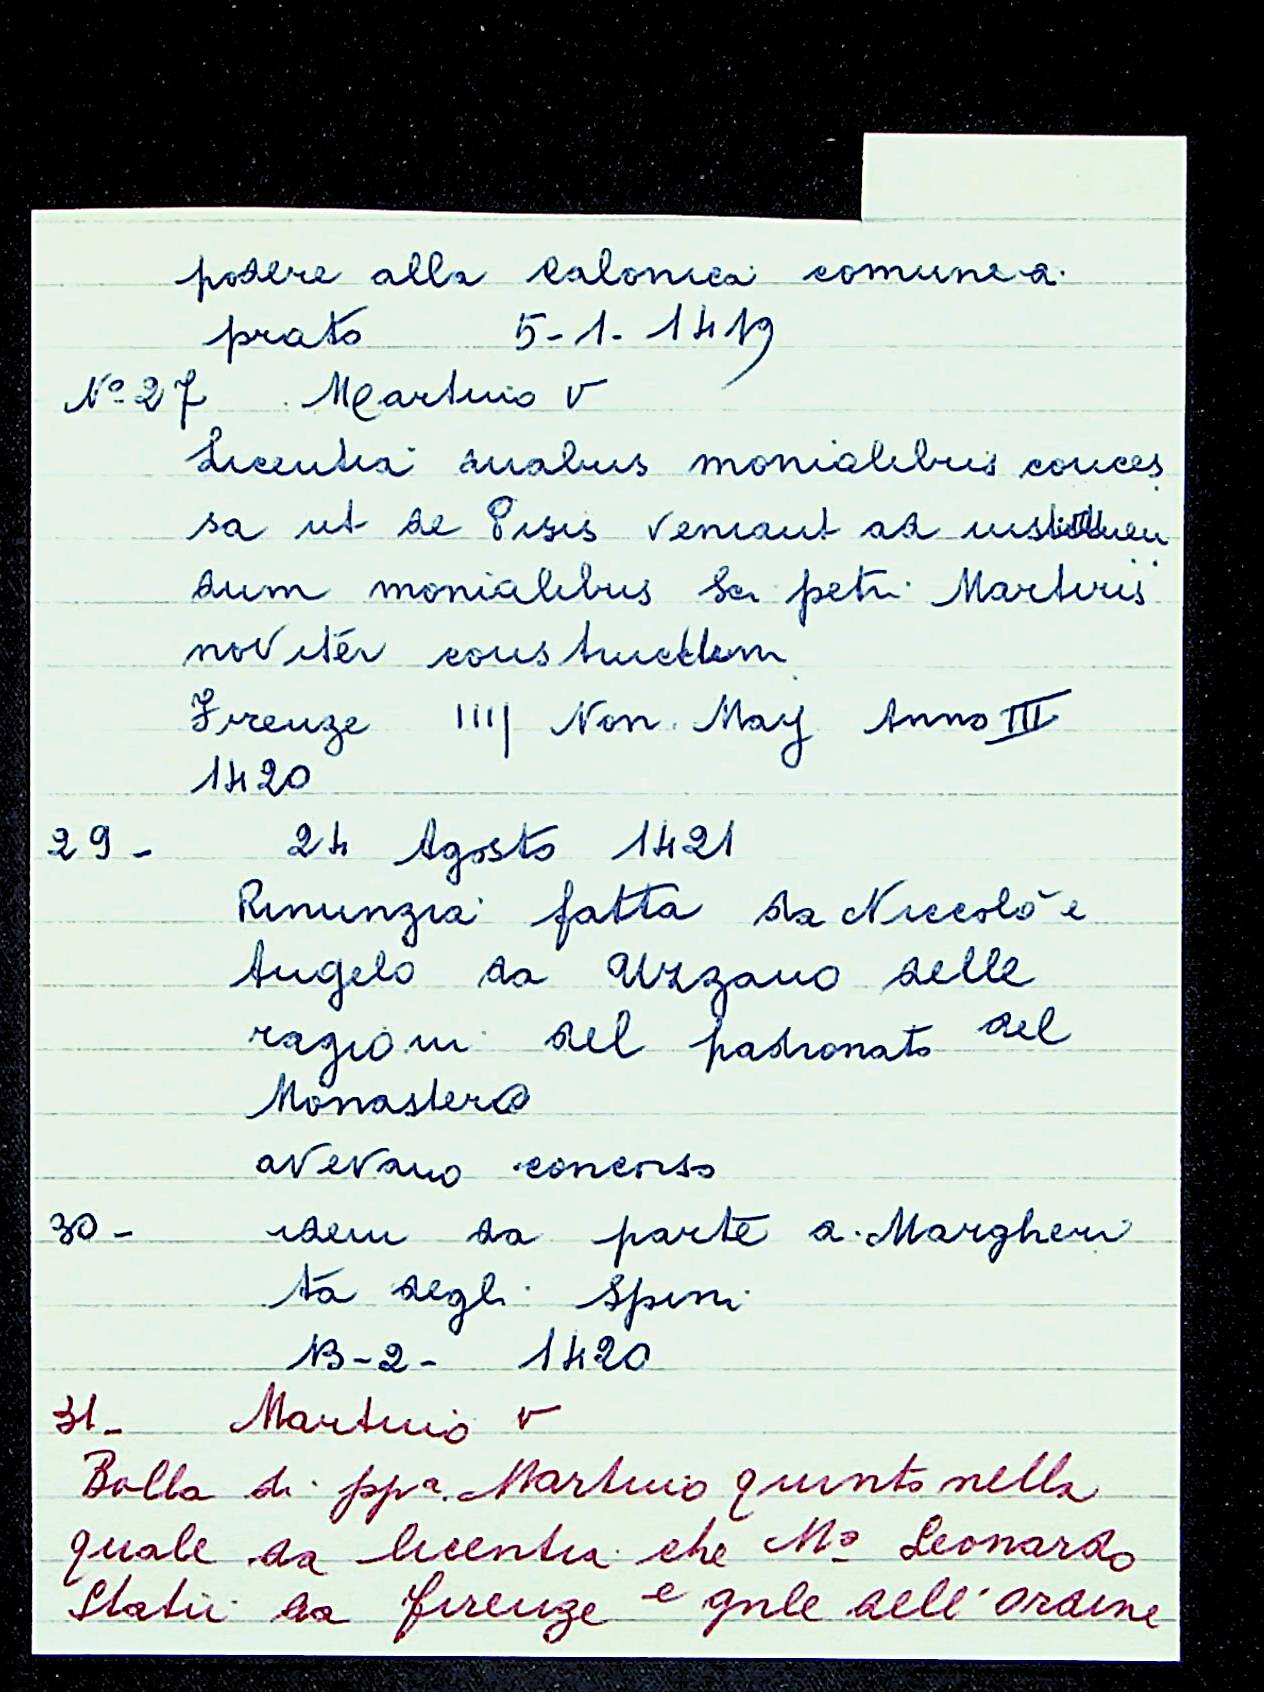 podere alla Calonica comune a
prato 5-1-1419
Nº 27 Martino V
Licentia duabus monialibus conces
sa ut de Pisis veniant ad instituen
dum monialibus Sci petri Martiris
noviter constructum
Firenze IIII Non. May Anno III
1420
29- 24 Agosto 1421
Rinunzia fatta da Niccolò e
Angelo da Uzzano delle
ragioni del padronato del
Monastero
avevano concorso
30- idem da parte a. Margheri
ta degli Spini
13-2- 1420
31- Martino V
Bolla di ppa Martino quinto nella
quale da licentia che Mº Leonardo
Statii da firenze e gnle dell'ordine